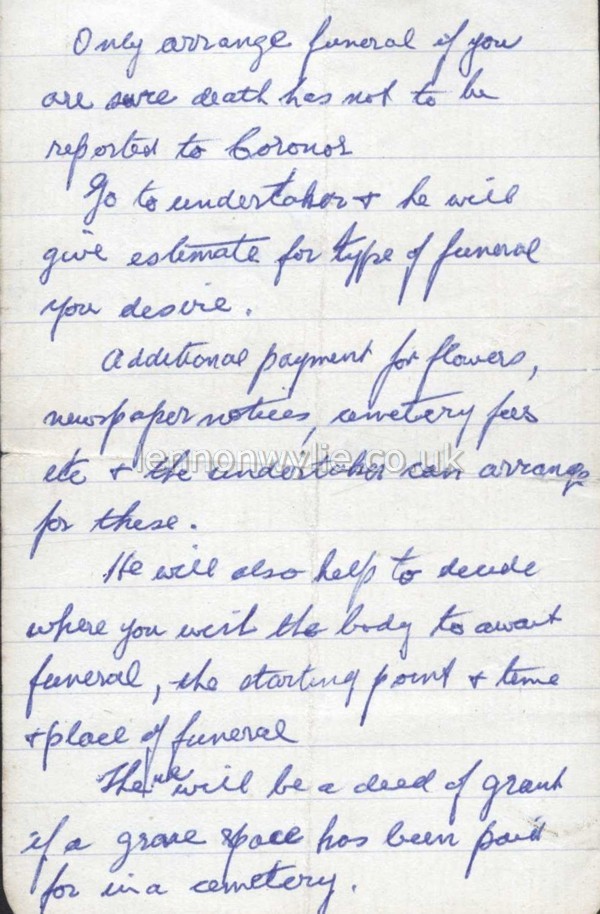 Only arrange funeral if you
are sure death has not to be
reported to Coroner
Go to undertaker & he will
give estimate for type of funeral
you desire.
Additional payment for flowers,
newspaper notices, cemetery fees
etc & the undertaker can arrange
lennonwylie.co.uk
for these.
He will also help to decide
where you wish the body to await
funeral, the starting point & time
& place of funeral
There will be a deed of grant
if a grave space has been paid
for in a cemetery.